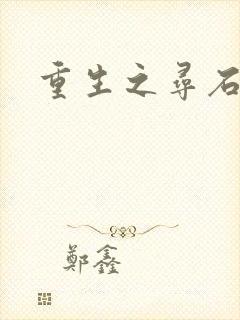 重生之尋石
鄭鑫